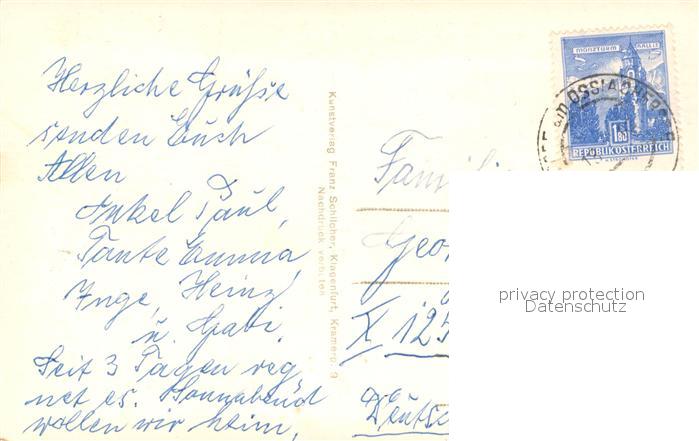 Herzliche Grüße
senden Euch
Allen
Onkel Paul,
Tante Emma,
Inge, Heinz
u. Gabi.
Seit 3 Tagen reg-
net es. Sonnabend
wollen wir heim.
Kunstverlag Franz Schilcher, Klagenfurt, Kramerg. 9
Nachdruck verboten
MÜNZTURM HALL I.T.
1.80
REPUBLIK ÖSTERREICH
AM OSSIACHERSEE
Famili
Geo
X 125
Deutsc
privacy protection
Datenschutz